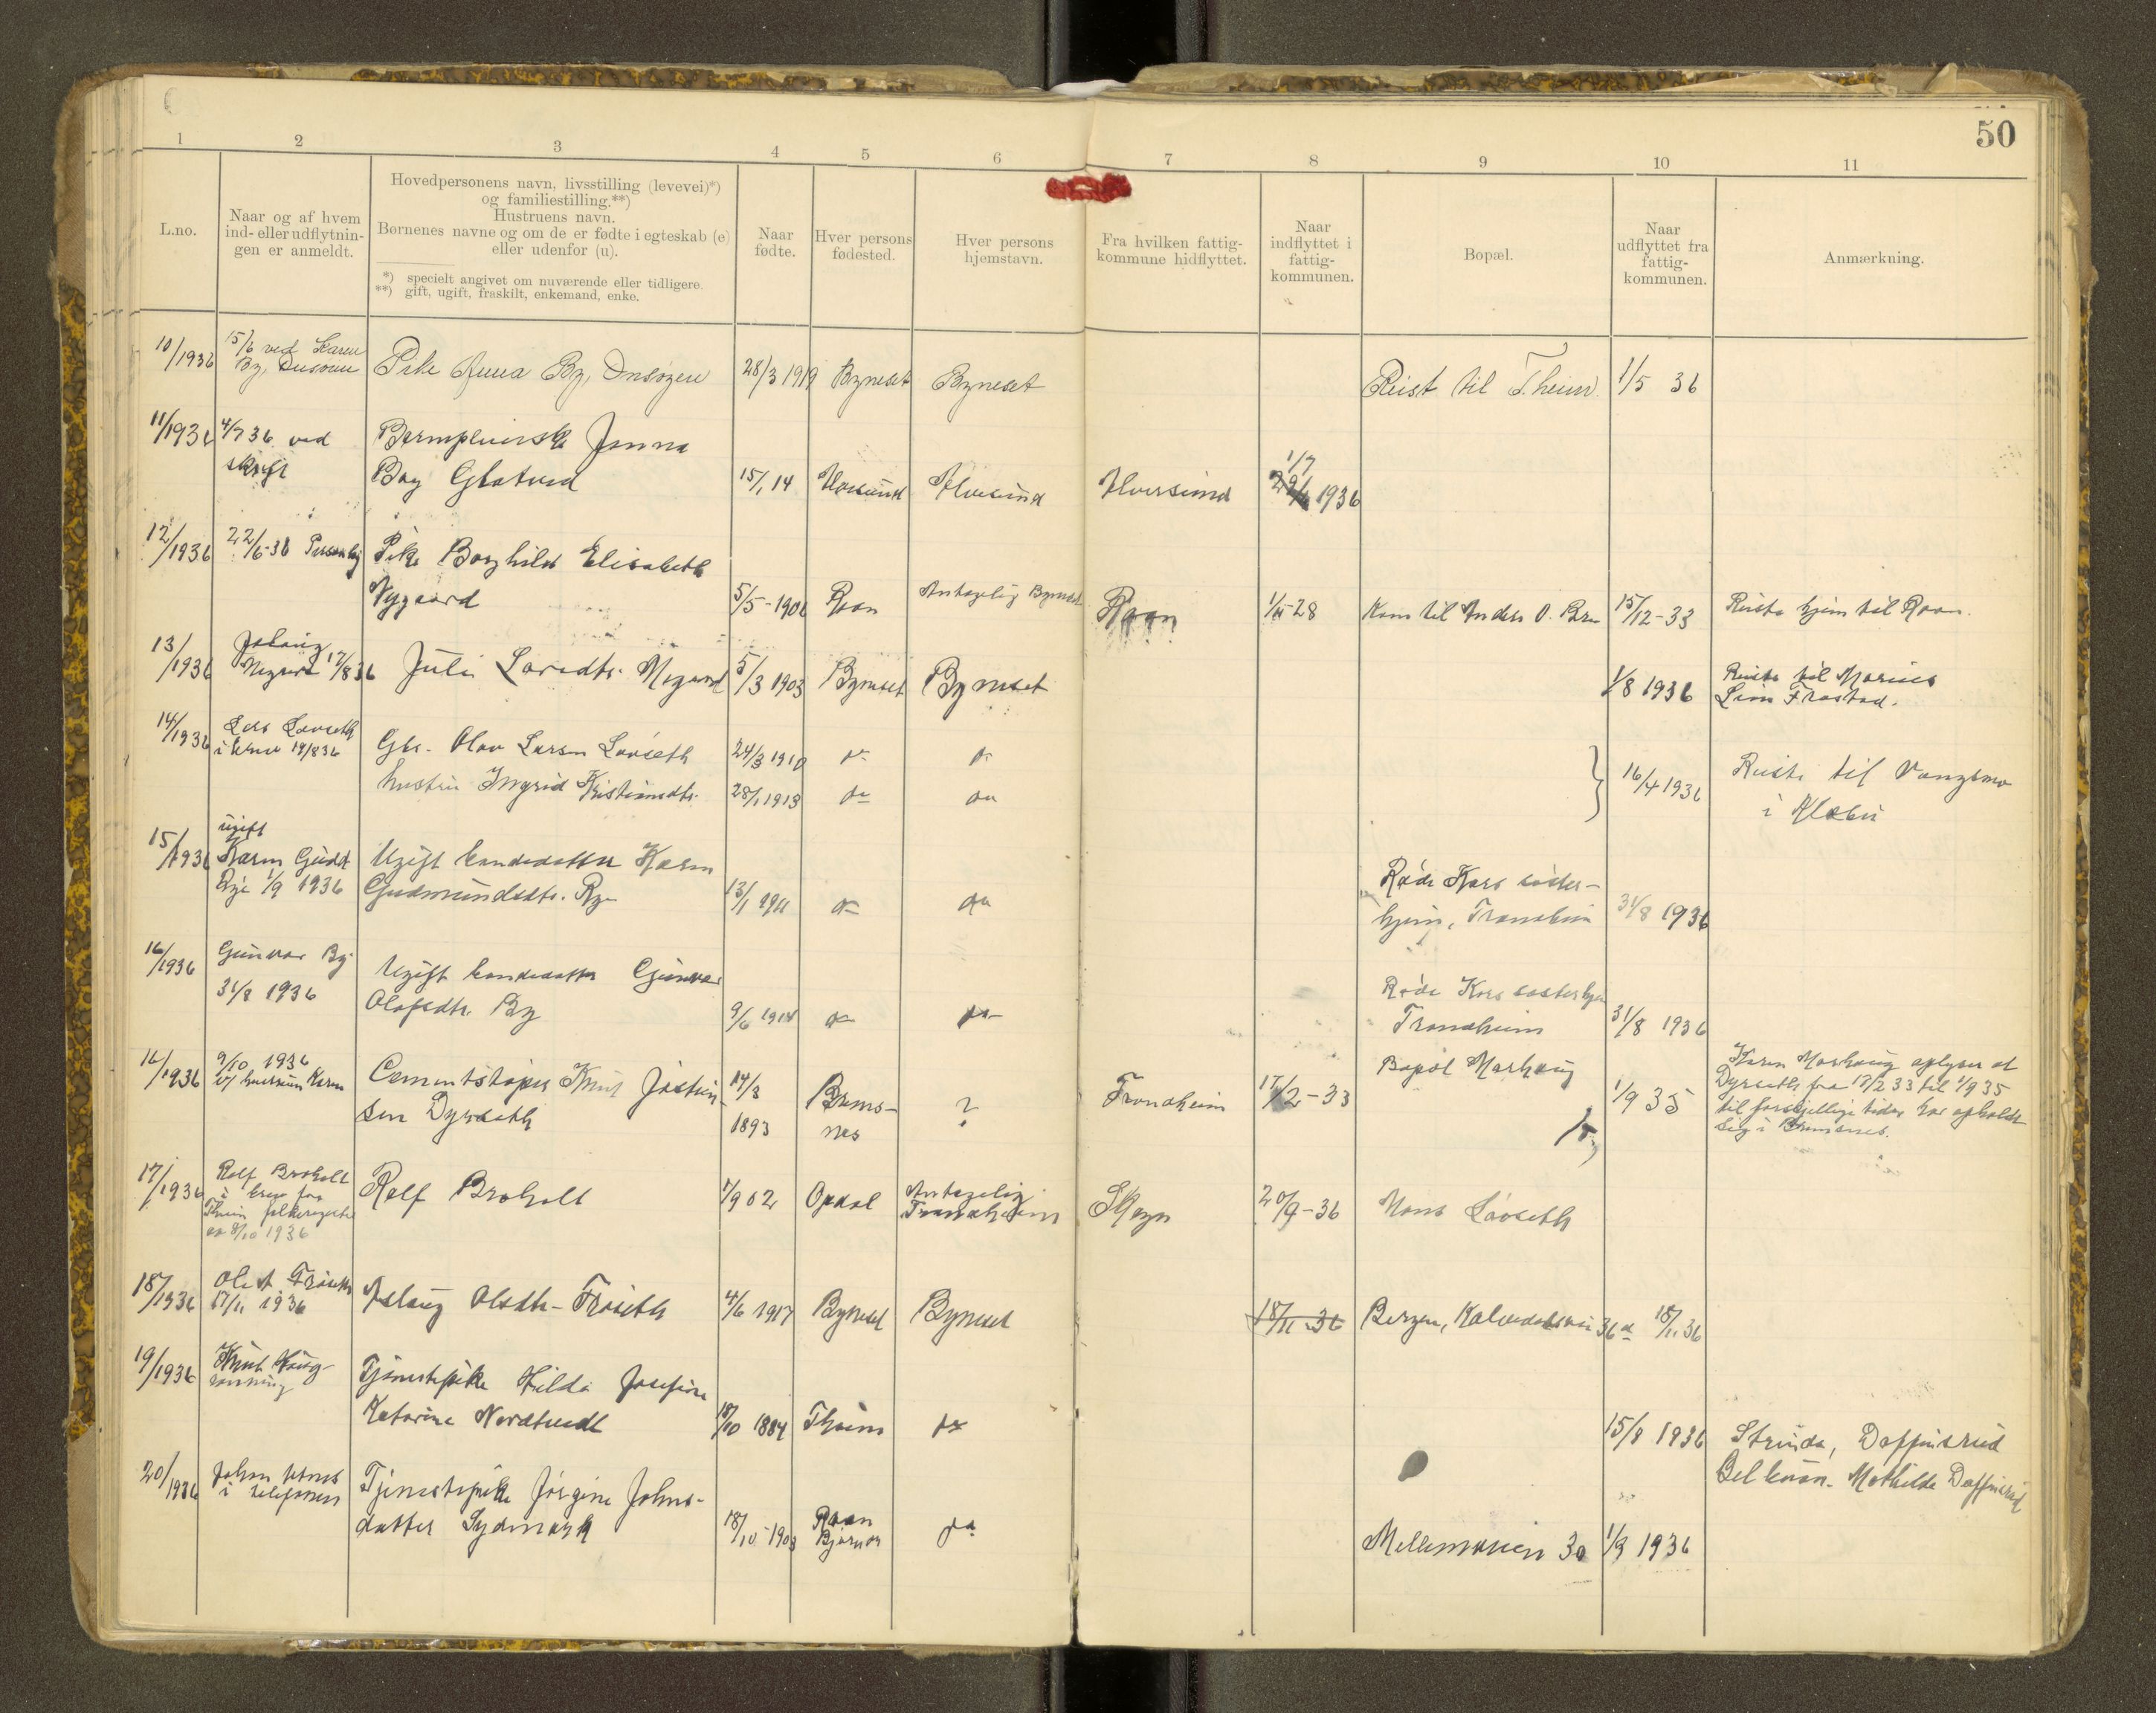 50
1 2 3 4 5 6 7 8 9 10 11
L.no.
Naar og af hvem
ind- eller udflytnin-
gen er anmeldt.
Hovedpersonens navn, livsstilling (levevei)*)
og familiestilling.**)
Hustruens navn.
Børnenes navne og om de er fødte i egteskab (e)
eller udenfor (u).
*) specielt angivet om nuværende eller tidligere.
**) gift, ugift, fraskilt, enkemand, enke.
Naar
fødte.
Hver persons
fødested.
Hver persons
hjemstavn.
Fra hvilken fattig-
kommune hidflyttet.
Naar
indflyttet i
fattig-
kommunen.
Bopæl.
Naar
udflyttet fra
fattig-
kommunen.
Anmærkning.
10/1936 15/6 ved Karen
By, Pike Anna By, 28/3 1919 Byneset Byneset Reist til T.heim. 1/5 36
11/1936 4/7 36 ved Jenna
skrift
15/1 14 1/7
1936
12/1936 22/6-36 Personlig Pike Borghild Elisabeth
Nygaard 5/5-1906 Roan Antagelig Byneset Roan 28 Kom til Anders O. Bru 15/12-33 Reiste hjem til Roan.
13/1936 17/8 36 Juli 5/3 1903 Byneset Byneset 1/8 1936 Reiste til Marius
Frostad.
14/1936 Lars Løvseth
i brev 19/8 36 Gbr. Olav Larsen Løvseth 24/3 1910
hustru Ingrid Kristiansdtr. 28/1 1913 do do } 16/4 1936 Reiste til Vangsmo
i Klæbu
15/1936 ugift
Karen Gudd
Rye 1/9 1936 Ugift Karen
Gudmundsdtr. Rye 13/1 1911 do do Røde Kors søster-
hjem, Trondheim 31/8 1936
16/1936 Gunvor By
31/8 1936 Ugift Gunvor
Olafsdtr. By 9/6 1914 do do Røde Kors søsterhjem
Trondheim 31/8 1936
16/1936 9/10 1936
v/ Karen Cementstøper Knut Josten-
sen Dyrseth 14/3
1893 Brems-
nes ? Trondheim 17/2-33 Bopæl Morhaug 1/9 35 Karen Morhaug oplyser at
Dyrseth fra 17/2 33 til 1/9 35
til forskjellige tider har opholdt
sig i Bremsnes.
17/1936 Rolf Broholt
i brev fra
T.heim folkeregister
av 8/10 1936 Rolf Broholt 7/9 02 Opdal Antagelig
Trondheim Skogn 20/9-36 Hans Løvseth
18/1936 Ole A. Frøseth
17/11 1936 Aslaug Olsdtr. Frøseth 4/6 1917 Byneset Byneset 18/11-36 Bergen, Kalvedalsvei 36 d 18/11 36
19/1936 Knut
Tjenestepike Hilda Josefine
Katarina Nordtvedt 18/10 1884 T.heim do 15/8 1936 Strinda, Daffinsrud
Mathilde Daffinsrud
20/1936 John
i telefonen Tjenestepike Jørgine Johns-
datter Sydmark 18/10-1903 Roan
Bjørnør do Mellomveien 30 1/9 1936